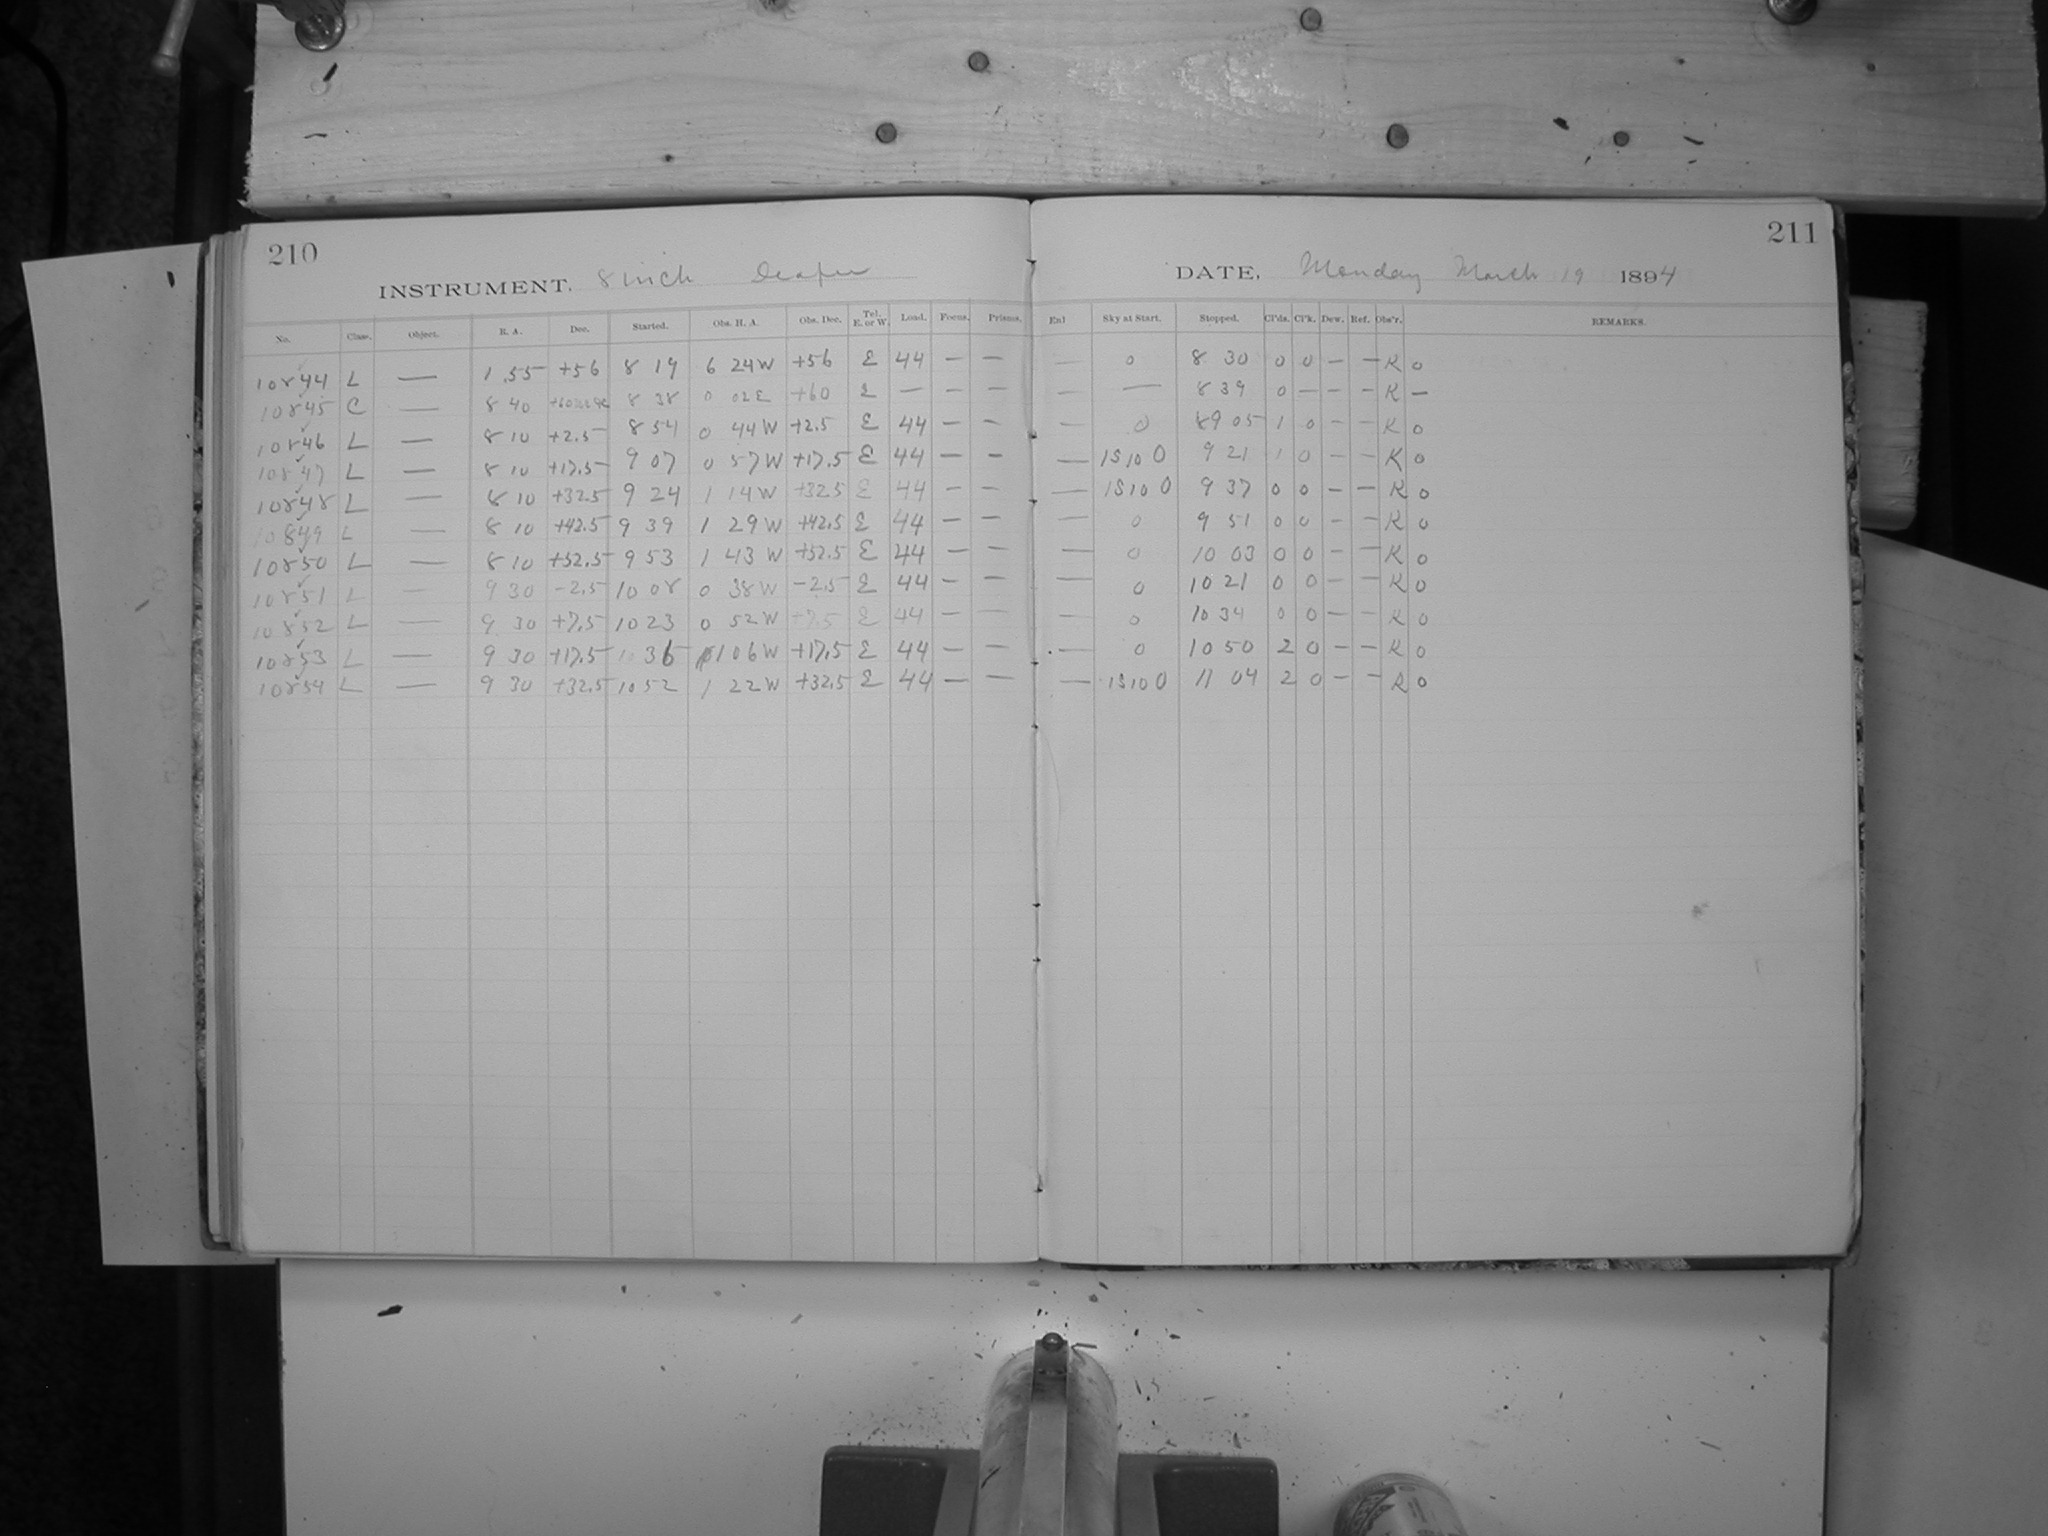 210
INSTRUMENT. 8 inch Draper
No. Class. Object. R. A. Dec. Started. Obs. H. A. Obs. Dec. Tel. E. or W. Load. Focus. Prisms.
10844 L — 1 55 +56 8 19 6 24 W +56 E 44 — —
10845 C — 8 40 8 38 0 02 E +60 E — — —
10846 L — 8 10 +2.5 8 54 0 44 W +2.5 E 44 — —
10847 L — 8 10 +17.5 9 07 0 57 W +17.5 E 44 — —
10848 L — 8 10 +32.5 9 24 1 14 W +32.5 E 44 — —
10849 L — 8 10 +42.5 9 39 1 29 W +42.5 E 44 — —
10850 L — 8 10 +52.5 9 53 1 43 W +52.5 E 44 — —
10851 L — 9 30 -2.5 10 08 0 38 W -2.5 E 44 — —
10852 L — 9 30 +7.5 10 23 0 52 W +7.5 E 44 — —
10853 L — 9 30 +17.5 10 36 1 06 W +17.5 E 44 — —
10854 L — 9 30 +32.5 10 52 1 22 W +32.5 E 44 — —
211
DATE, Monday March 19 1894
Exl Sky at Start. Stopped. Cl'ds. Cl'k. Dew. Ref. Obs'r. REMARKS.
— 0 8 30 0 0 — — K 0
— — 8 39 0 — — — K —
— 0 9 05 1 0 — — K 0
— 1S10 0 9 21 1 0 — — K 0
— 1S10 0 9 37 0 0 — — K 0
— 0 9 51 0 0 — — K 0
— 0 10 03 0 0 — — K 0
— 0 10 21 0 0 — — K 0
— 0 10 34 0 0 — — K 0
— 0 10 50 2 0 — — K 0
— 1S10 0 11 04 2 0 — — K 0